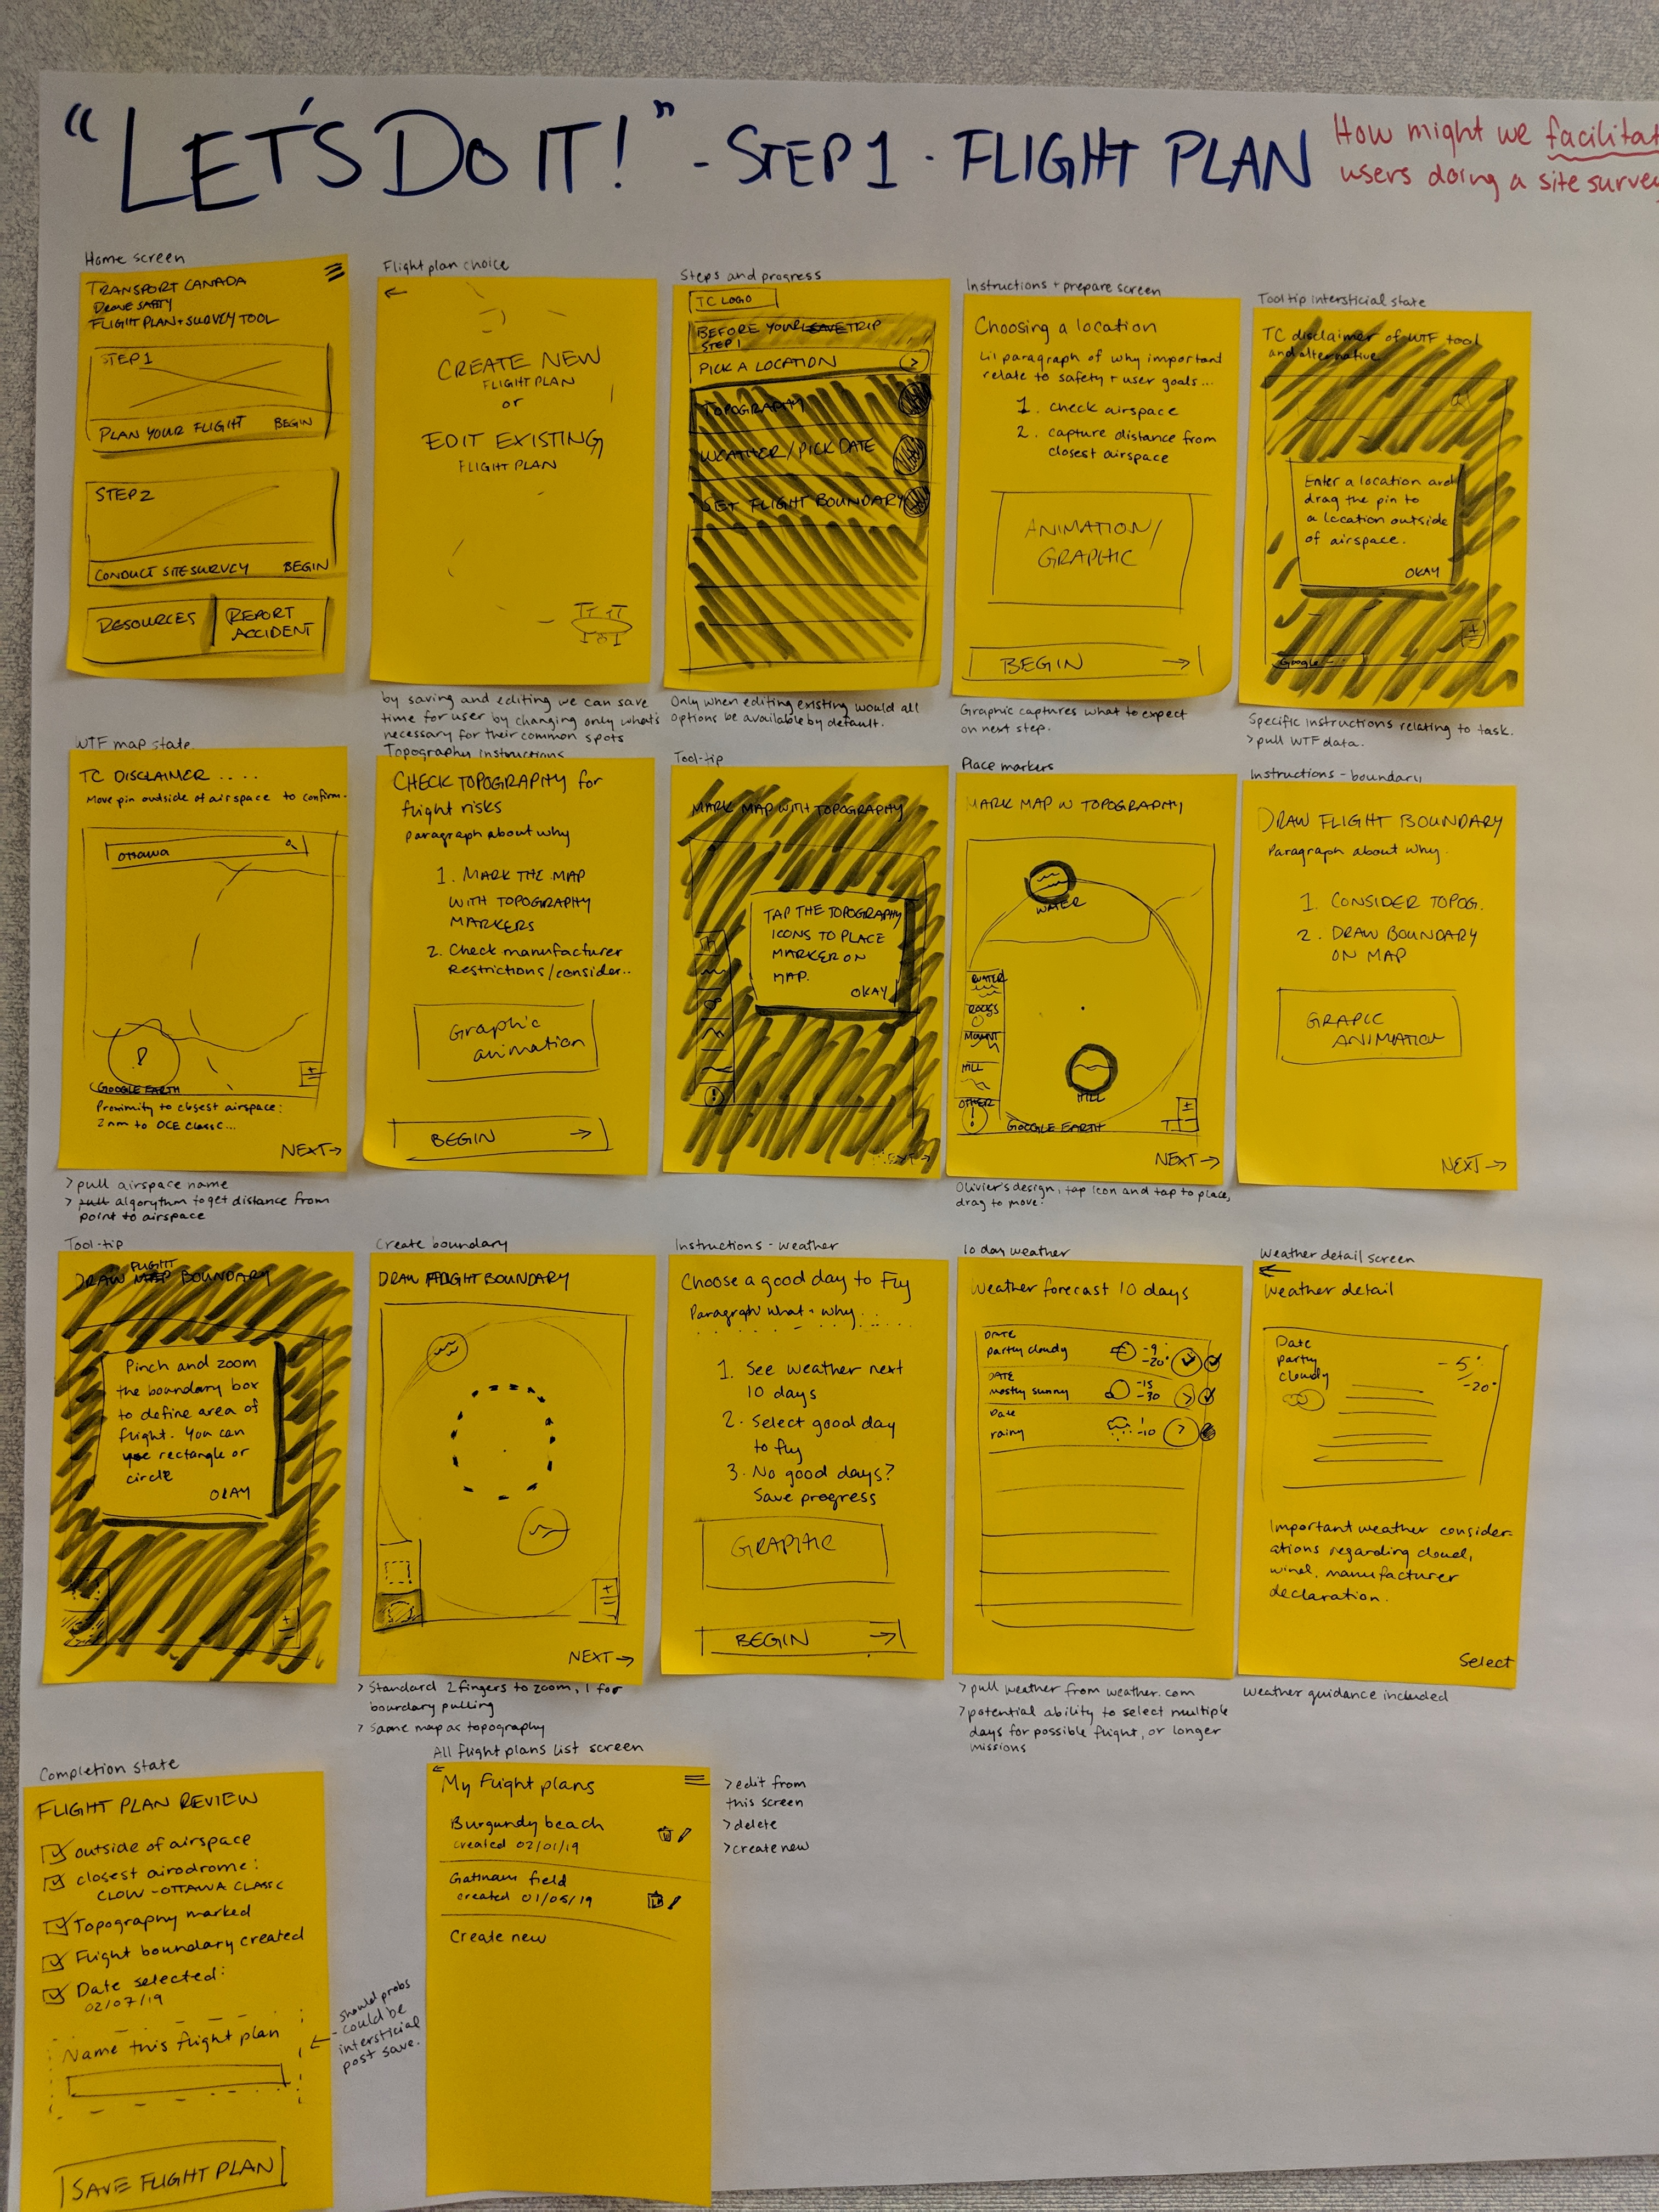 "LET'S DO IT!" - STEP 1 · FLIGHT PLAN
How might we facilitat
users doing a site survey
Home screen
TRANSPORT CANADA
DRONE SAFTY
FLIGHT PLAN + SURVEY TOOL
STEP 1
PLAN YOUR FLIGHT BEGIN
STEP 2
CONDUCT SITE SURVEY BEGIN
RESOURCES
REPORT
ACCIDENT
Flight plan choice
CREATE NEW
FLIGHT PLAN
or
EDIT EXISTING
FLIGHT PLAN
by saving and editing we can save
time for user by changing only what's
necessary for their common spots
Steps and progress
TC LOGO
BEFORE YOUR SAVE TRIP
STEP 1
PICK A LOCATION
TOPOGRAPHY
WEATHER / PICK DATE
SET FLIGHT BOUNDARY
Only when editing existing would all
options be available by default.
Instructions + prepare screen
Choosing a location
Lil paragraph of why important
relate to safety + user goals...
1. check airspace
2. capture distance from
closest airspace
ANIMATION/
GRAPHIC
BEGIN →
Graphic captures what to expect
on next step.
Tool tip intersticial state
TC disclaimer of WTF tool
and alternative
Enter a location and
drag the pin to
a location outside
of airspace.
OKAY
Google
Specific instructions relating to task.
> pull WTF data.
WTF map state
TC DISCLAIMER ....
Move pin outside of airspace to confirm.
Ottawa
GOOGLE EARTH
Proximity to closest airspace:
2nm to OCE Classc...
NEXT →
> pull airspace name
> pull algorythm to get distance from
point to airspace
Topography instructions
CHECK TOPOGRAPHY for
flight risks
paragraph about why
1. MARK THE MAP
WITH TOPOGRAPHY
MARKERS
2. Check manufacturer
restrictions/consider..
Graphic
animation
BEGIN →
Tool-tip
MARK MAP WITH TOPOGRAPHY
TAP THE TOPOGRAPHY
ICONS TO PLACE
MARKER ON
MAP.
OKAY
NEXT →
Place markers
MARK MAP W TOPOGRAPHY
WATER
WATER
ROCKS
MOUNT
HILL
OTHER
HILL
GOOGLE EARTH
NEXT →
Olivier's design, tap icon and tap to place,
drag to move.
Instructions - boundary
DRAW FLIGHT BOUNDARY
Paragraph about why.
1. CONSIDER TOPOG.
2. DRAW BOUNDARY
ON MAP
GRAPIC
ANIMATION
NEXT →
Tool-tip
FLIGHT
DRAW MAP BOUNDARY
Pinch and zoom
the boundary box
to define area of
flight. You can
use rectangle or
circle
OKAY
Create boundary
DRAW FLIGHT BOUNDARY
NEXT →
> Standard 2 fingers to zoom, 1 for
boundary pulling
> Same map as topography
Instructions - weather
Choose a good day to Fly
Paragraph what + why...
1. See weather next
10 days
2. Select good day
to fly
3. No good days?
Save progress
GRAPHIC
BEGIN →
10 day weather
Weather forecast 10 days
DATE
partly cloudy -9
-20°
DATE
mostly sunny -15
-30
Date
rainy -10
> pull weather from weather.com
> potential ability to select multiple
days for possible flight, or longer
missions
Weather detail screen
Weather detail
Date
partly
cloudy
-5°
-20°
Important weather consider-
ations regarding cloud,
wind, manufacturer
declaration.
Select
Weather guidance included
Completion state
FLIGHT PLAN REVIEW
outside of airspace
closest airodrome:
CLOW - OTTAWA CLASS C
Topography marked
Flight boundary created
Date selected:
02/07/19
Name this flight plan
SAVE FLIGHT PLAN
should probs
- could be
intersticial
post save.
All flight plans list screen
My Flight plans
Burgundy beach
created 02/01/19
Gatineau field
created 01/05/19
Create new
> edit from
this screen
> delete
> create new